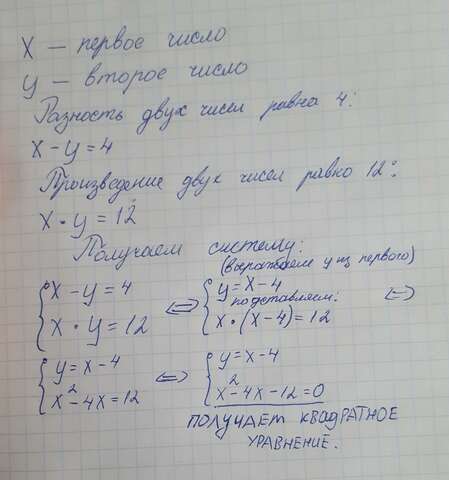 x — первое число
y — второе число
Разность двух чисел равна 4:
x - y = 4
Произведение двух чисел равно 12:
x · y = 12
Получаем систему:
(выражаем y из первого)
{ x - y = 4
x · y = 12
⇔ { y = x - 4
подставляем:
x · (x - 4) = 12 ⇔
{ y = x - 4
x² - 4x = 12
⇔ { y = x - 4
x² - 4x - 12 = 0
ПОЛУЧАЕТ КВАДРАТНОЕ
УРАВНЕНИЕ.